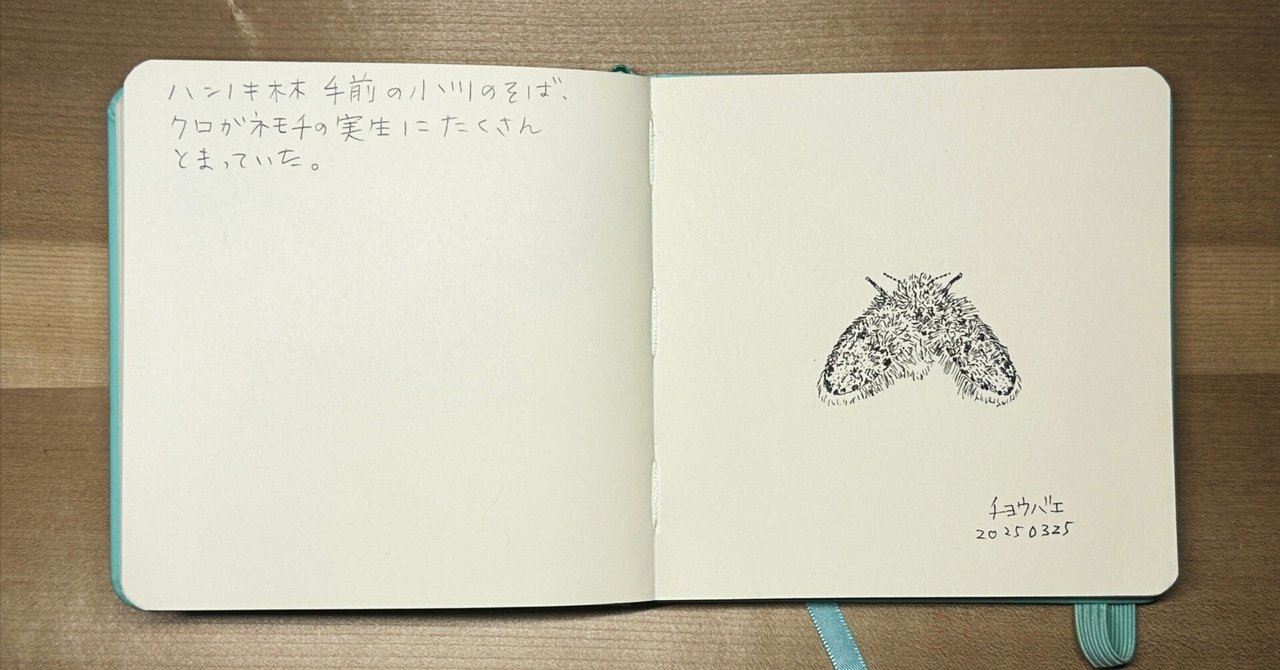 ハンノキ林 手前の小川のそば、
クロガネモチの実生にたくさん
とまっていた。
チョウバエ
20250325